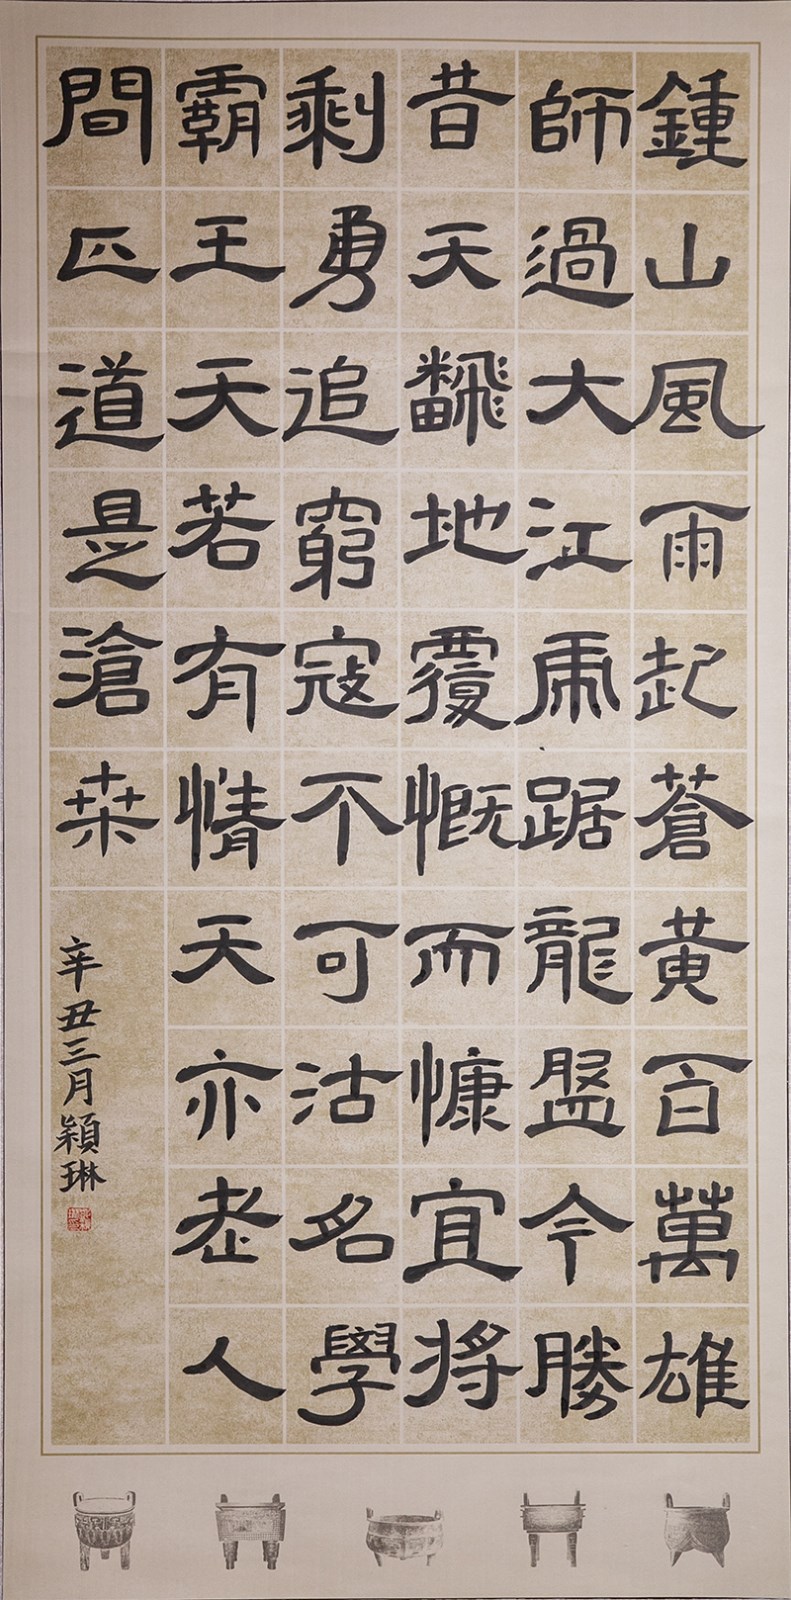 鍾山風雨起蒼黃百萬雄
師過大江虎踞龍盤今勝
昔天飜地覆慨而慷宜將
剩勇追窮寇不可沽名學
霸王天若有情天亦老人
間正道是滄桒
辛丑三月穎琳